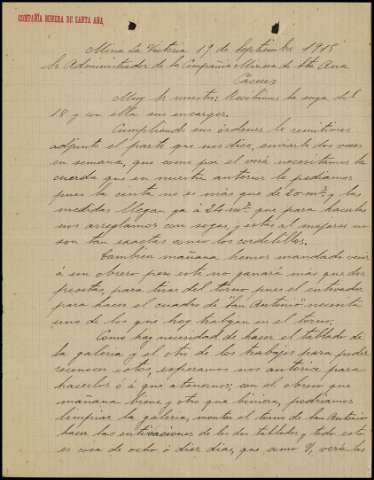 COMPAÑÍA MINERA DE SANTA ANA
Mina La Victoria 19 de Septiembre 1915
Sr Administrador de la Compañia Minera de Sta Ana
Cáceres
Muy Sr nuestro: Recibimos la suya del
18 y con ella sus encargos.
Cumpliendo sus órdenes le remitimos
adjunto el parte que nos dice, enviarle dos veces
en semana, que como por el verá necesitamos la
cuerda que en nuestra anterior le pedíamos
pues la cinta no es más que de 20 m. y las
medidas llegan ya á 24 m. que para hacerlas
nos arreglamos con sogas, y estas al mojarse no
son tan exactas como los cordelillos.
Tambien mañana hemos mandado venir
á un obrero pero este no ganará más que dos
pesetas, para tirar del torno, pues el entivador
para hacer el cuadro de "San Antonio" necesita
uno de los que hoy trabajan en el torno.
Como hay necesidad de hacer el tablado de
la galeria y el otro de los trabajos para poder
reconocer estos, esperamos nos autorice para
hacerlos ó á que atenernos; con el obrero que
mañana viene y otro que hiciera, podríamos
limpiar la galeria, montar el torno de San Antonio
hacer las entivaciones de los dos tablados, y todo esto
es cosa de ocho ó diez dias, que como V. vería los